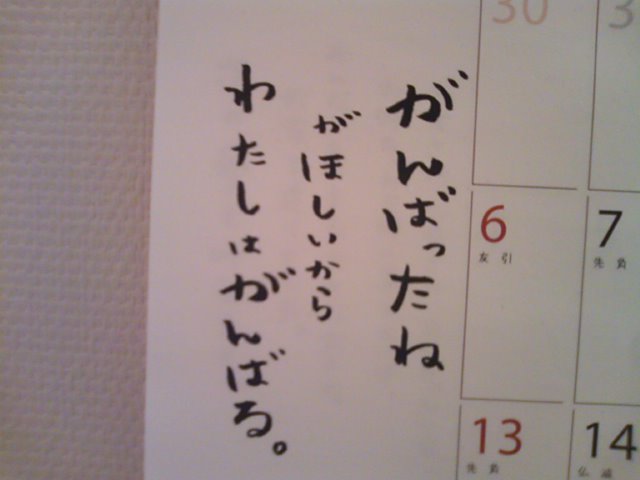 がんばったね
がほしいから
わたしはがんばる。
30
6
友引
7
先負
13
先負
14
仏滅